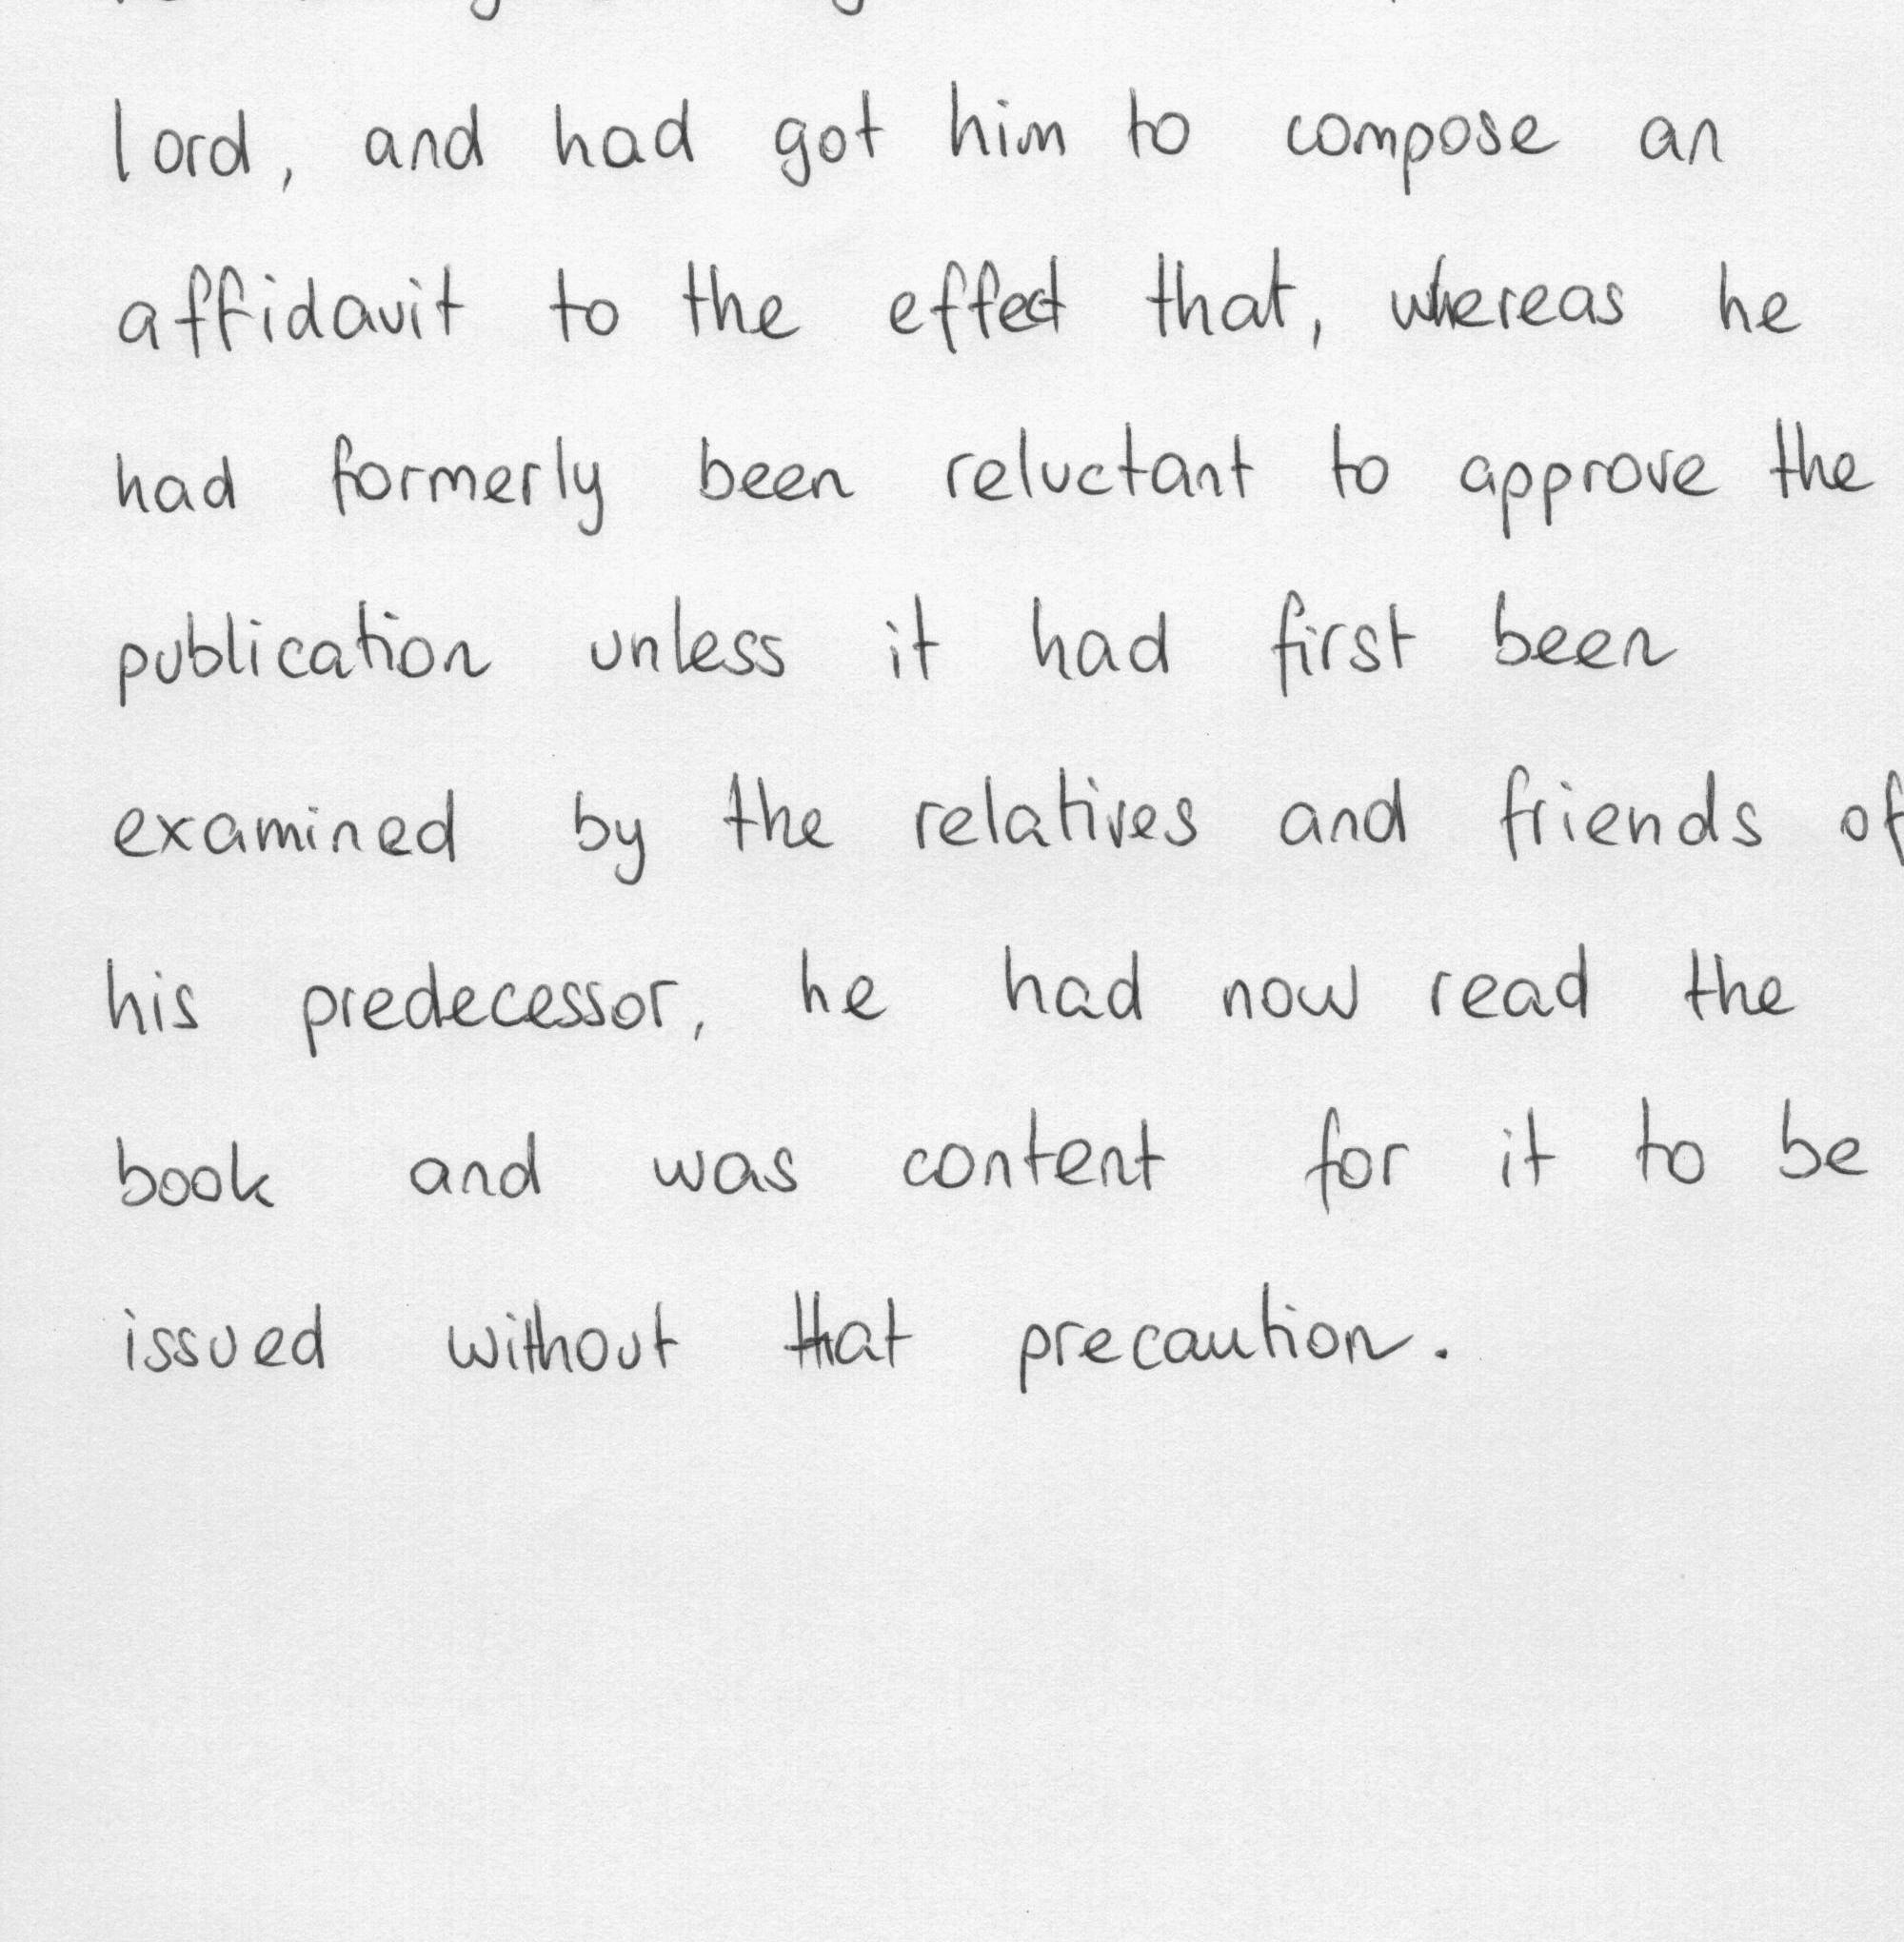 lord, and had got him to compose an
affidavit to the effect that, whereas he
had formerly been reluctant to approve the
publication unless it had first been
examined by the relatives and friends of
his predecessor, he had now read the
book and was content for it to be
issued without that precaution.